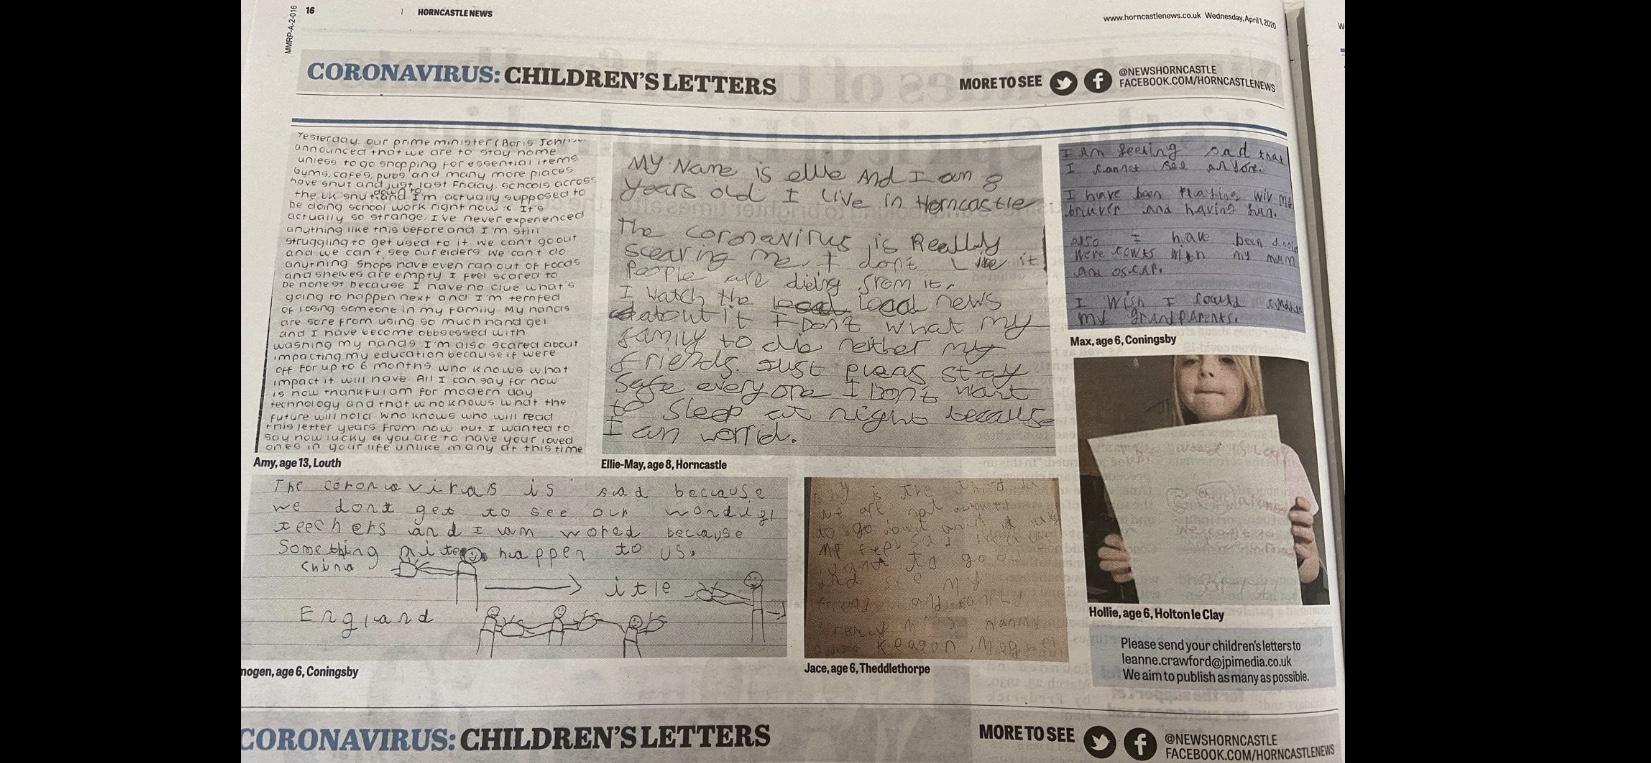 MMRP-A-2-016
16
HORNCASTLE NEWS
www.horncastlenews.co.uk Wednesday, April 1, 2020
CORONAVIRUS: CHILDREN'S LETTERS
MORE TO SEE
@NEWSHORNCASTLE
FACEBOOK.COM/HORNCASTLENEWS
Yesterday, our prime minister (Boris
announced that we are to stay home
unless to go shopping for essential items
Gyms, cafes, pubs and many more places
have shut and just last Friday, schools across
the UK shut down too and I'm actually supposed to
be doing school work right now :( It's
actually so strange. I've never experienced
anything like this before and I'm still
struggling to get used to it. We can't go out
and we can't see our elders. We can't do
anything. Shops have even ran out of foods
and shelves are empty. I feel scared to
be honest because I have no clue what's
going to happen next and I'm terrified
of losing someone in my family. My hands
are sore from using so much hand gel
and I have become obsessed with
washing my hands. I'm also scared about
impacting my education because if were
off for up to 6 months who knows what
impact it will have. All I can say for now
is how thankful am for modern day
technology and that who knows what the
future will hold. Who knows who will read
this letter years from now but I wanted to
say how lucky you are to have your loved
ones in your life unlike many at this time
Amy, age 13, Louth
My Name is ellie And I am 8
years old I Live in Horncastle
The coronavirus is Really
scearing me I dont Like it
People are dieing from it.
I watch the local news
about it I Don't what my
family to die neither my
friends. Just pleas stay
Safe every one I Don't want
to sleep at night becaus
I am worrid.
Ellie-May, age 8, Horncastle
I am feeling sad that
I cannot see
I have been Playing wiv my
bruver and having fun.
also I have been
with my mum
and oscar.
I Wish I could
my grandparents.
Max, age 6, Coningsby
The coronavirus is sad because
we dont get to see our
teechers and I am wored because
Something happen to us.
China
itle
England
nogen, age 6, Coningsby
we are not
to go
me feel sad
want to go
and see my
and family
Nanny
Jace, age 6, Theddlethorpe
Hollie, age 6, Holton le Clay
Please send your children's letters to
leanne.crawford@jpimedia.co.uk
We aim to publish as many as possible.
CORONAVIRUS: CHILDREN'S LETTERS
MORE TO SEE
@NEWSHORNCASTLE
FACEBOOK.COM/HORNCASTLENEWS